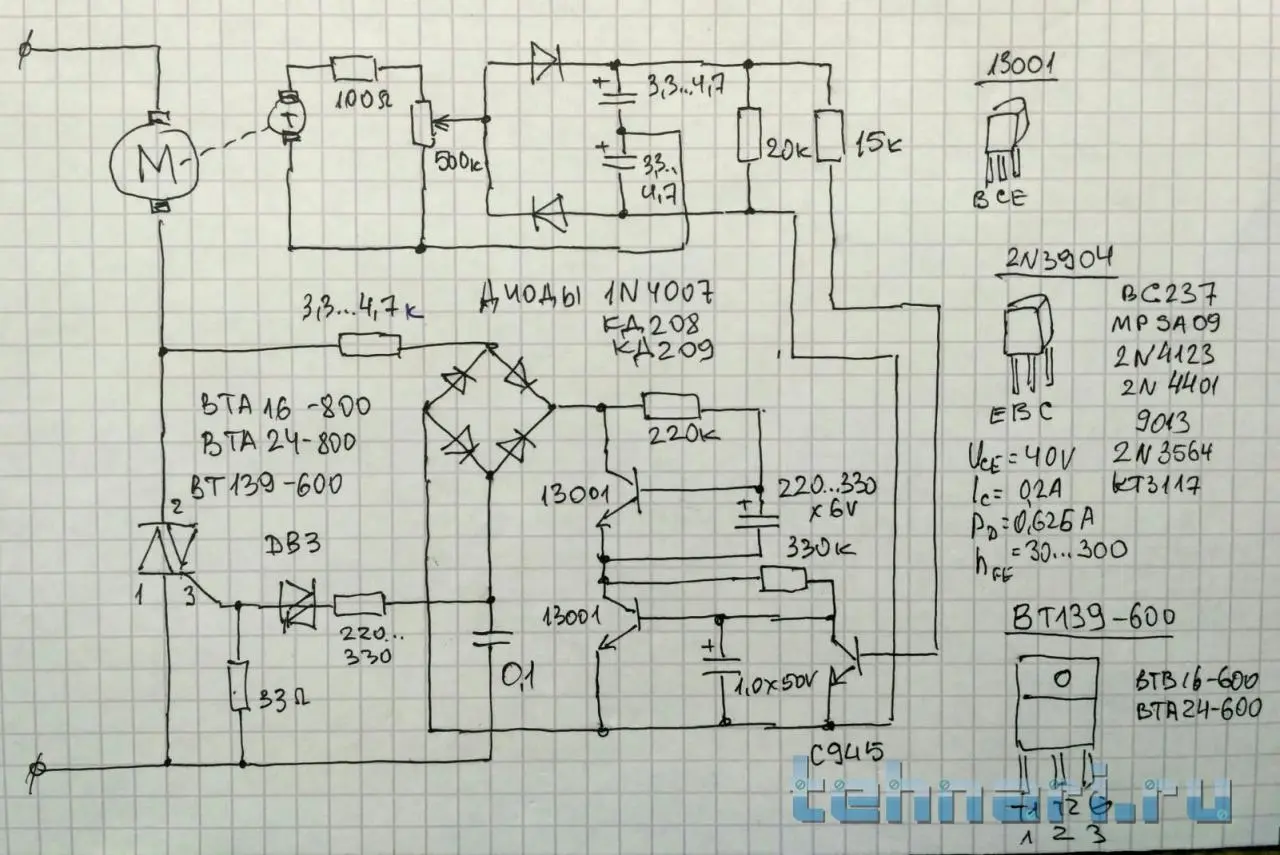 M
T
100Ω
500к
3,3...4,7
3,3...
4,7
20к
15к
13001
B C E
3,3...4,7 к
ДИОДЫ 1N4007
КД208
КД209
2N3904
BC237
MPSA09
2N4123
2N4401
9013
2N3564
КТ3117
E B C
UCE = 40V
IC = 0,2A
PD = 0,625A
hFE = 30...300
BTA16-800
BTA24-800
BT139-600
2
1
3
DB3
220...
330
33Ω
0,1
220к
13001
220...330
x 6V
330к
13001
1,0x50V
C945
BT139-600
BTB16-600
BTA24-600
T1 T2 G
1 2 3
tehnari.ru